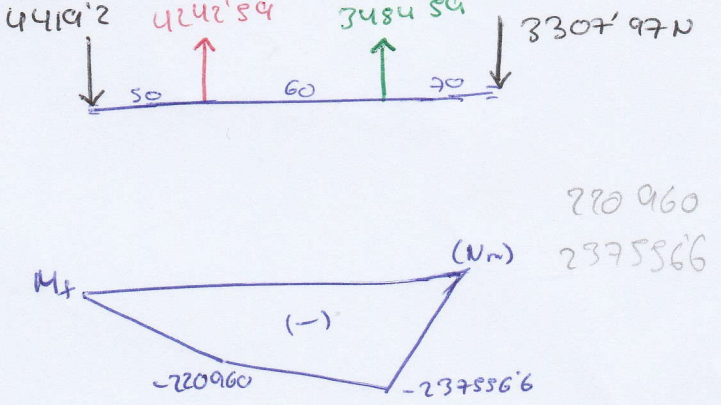 4419'2 4242'59 3484'59 3307'97N
50 60 70
220 960
237556'6
(Nm)
Mx
(-)
-220960
-237556'6